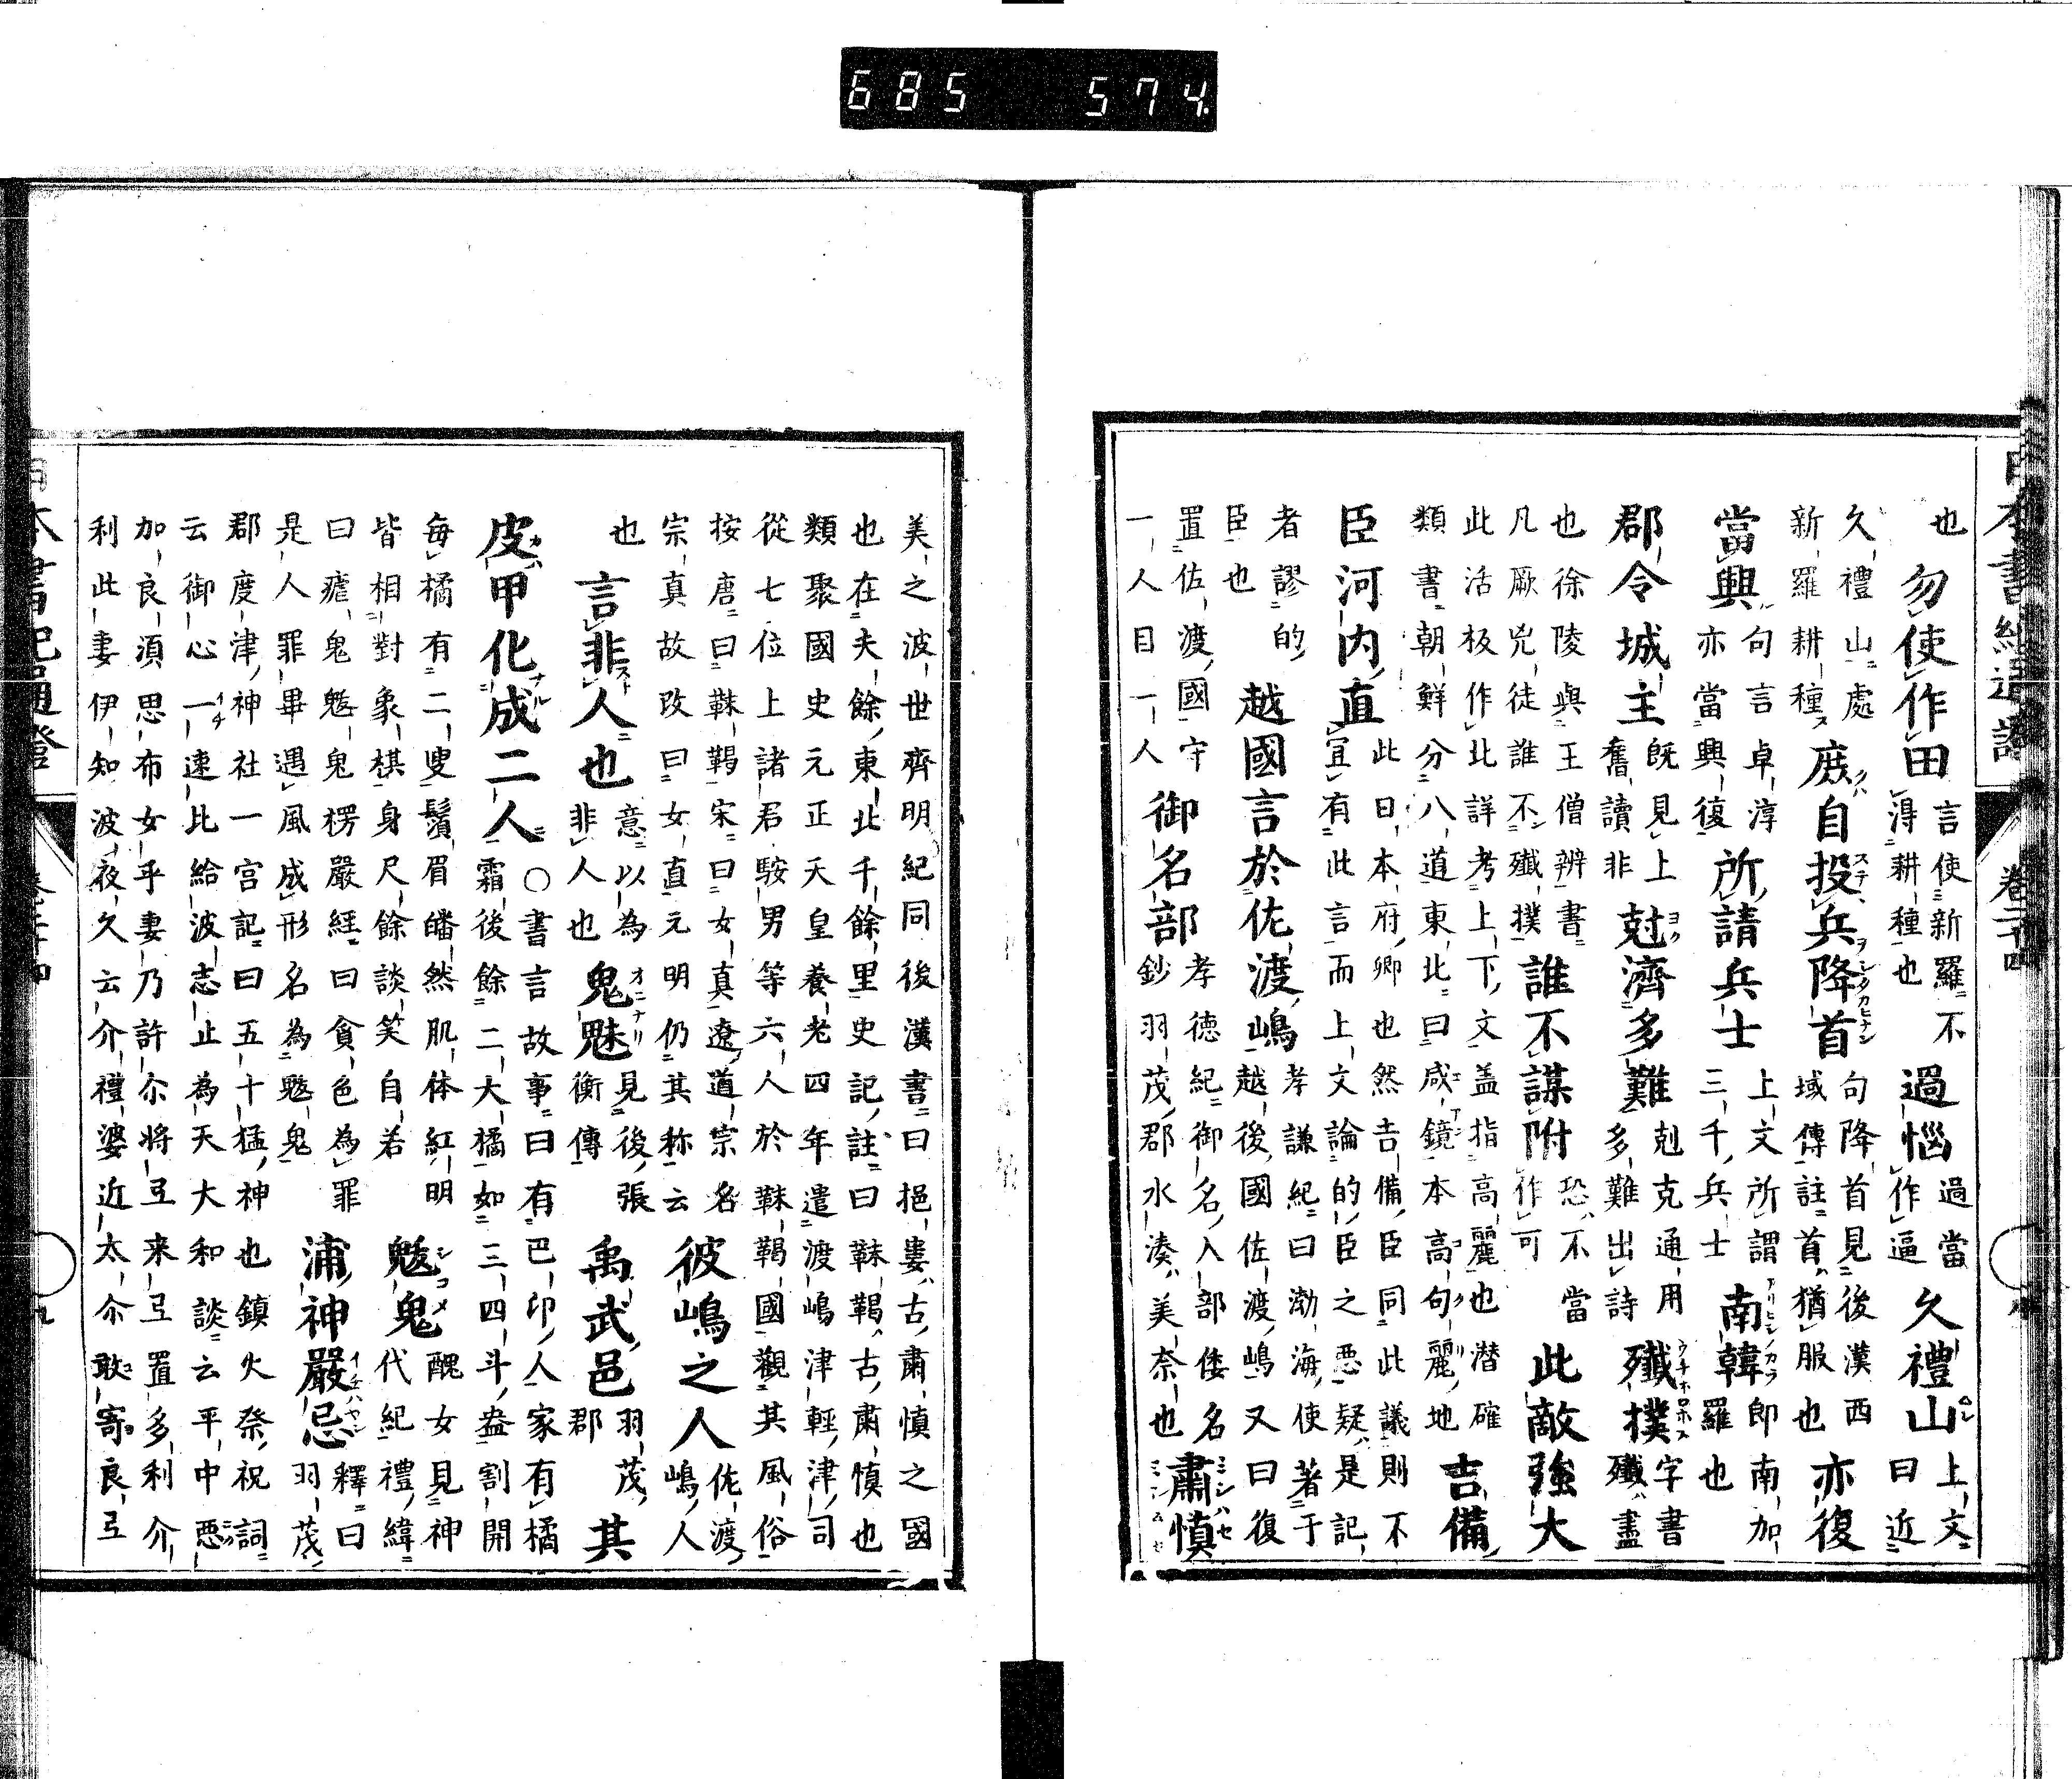 日本書紀通證 卷二十四
也 勿使作田 言使新羅不得耕種也 過惱 過當作逼 久禮山 上文曰近
久禮山處新羅耕種 庶自投兵降首 句降首見後漢西域傳註首猶服也 亦復
當興 句言卓淳亦當興復 所請兵士 上文所謂三千兵士 南韓 即南加羅也
郡令城主 既見上舊讀非 尅濟多難 剋克通用多難出詩 殲撲 字書殲盡
也徐陵與王僧辨書凡厥兇徒誰不殲撲 誰不謀附 恐不當作可 此敵強大
此活板作北詳考上下文盖指高麗也潜確類書朝鮮分八道東北曰咸鏡本高句麗地 吉備
臣河内直 此日本府卿也然吉備臣同此議則不宜有此言而上文論的臣之悪疑是記
者謬的臣也 越國言於佐渡嶋 孝謙紀曰渤海使著于越後國佐渡嶋又曰復
置佐渡國守一人目一人 御名部 孝德紀御名入部倭名鈔羽茂郡水湊美奈也 肅慎
美之波世齊明紀同後漢書曰挹婁古肅慎之國也在夫餘東北千餘里史記註曰靺鞨古肅慎也
類聚國史元正天皇養老四年遣渡嶋津輕津司從七位上諸君鞍男等六人於靺鞨國觀其風俗
按唐曰靺鞨宋曰女真遼道宗名宗真故改曰女直元明仍其称云 彼嶋之人 佐渡嶋人
也 言非人也 意以為非人也 鬼魅 見後張衡傳 禹武邑 羽茂郡 其
皮甲化成二人 ○書言故事曰有巴卬人家有橘霜後餘二大橘如三四斗盎割開
每橘有二叟鬢眉皤然肌体紅明皆相對象棋身尺餘談笑自若 魃鬼 醜女見神代紀禮緯
曰瘧鬼魃鬼楞嚴經曰貪色為罪是人罪畢遇風成形名為魃鬼 浦神嚴忌 釋曰羽茂
郡度津神社一宮記曰五十猛神也鎮火祭祝詞云御心一速比給波志止為天大和談云平中悪
加良湏思布女乎妻乃許尓将弖来弖置多利介利此妻伊知波夜久云介禮婆近太尓敢寄良弖
日本書紀通證 九
685 574